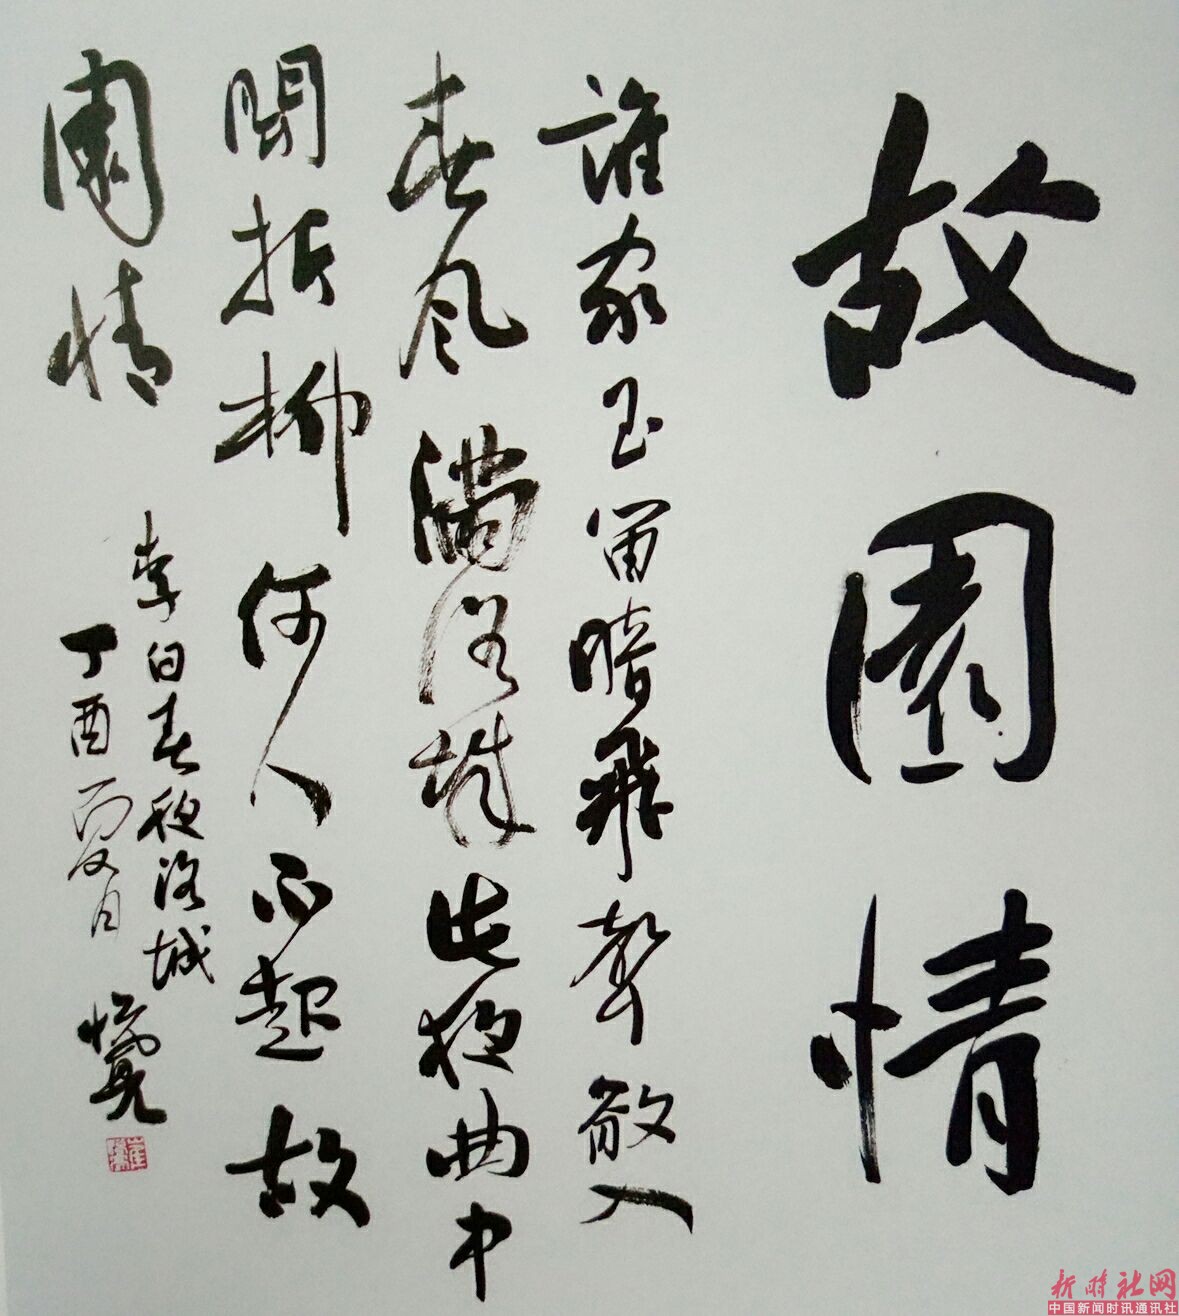 故園情
誰家玉笛暗飛聲散入
春風滿洛城此夜曲中
聞折柳何人不起故
園情
李白春夜洛城
丁酉夏月
新时社网
中国新闻时讯通讯社